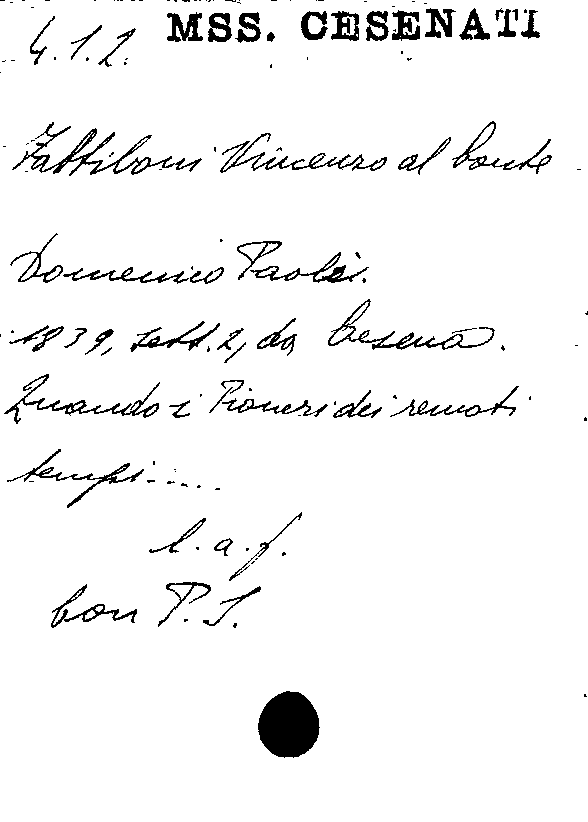 4.1.2. MSS. CESENATI
Fattiboni Vincenzo al Conte
Domenico Paoli.
1839, sett. 2, da Cesena.
Quando i Pioneri dei remoti
tempi.....
l. a. f.
Con P. S.